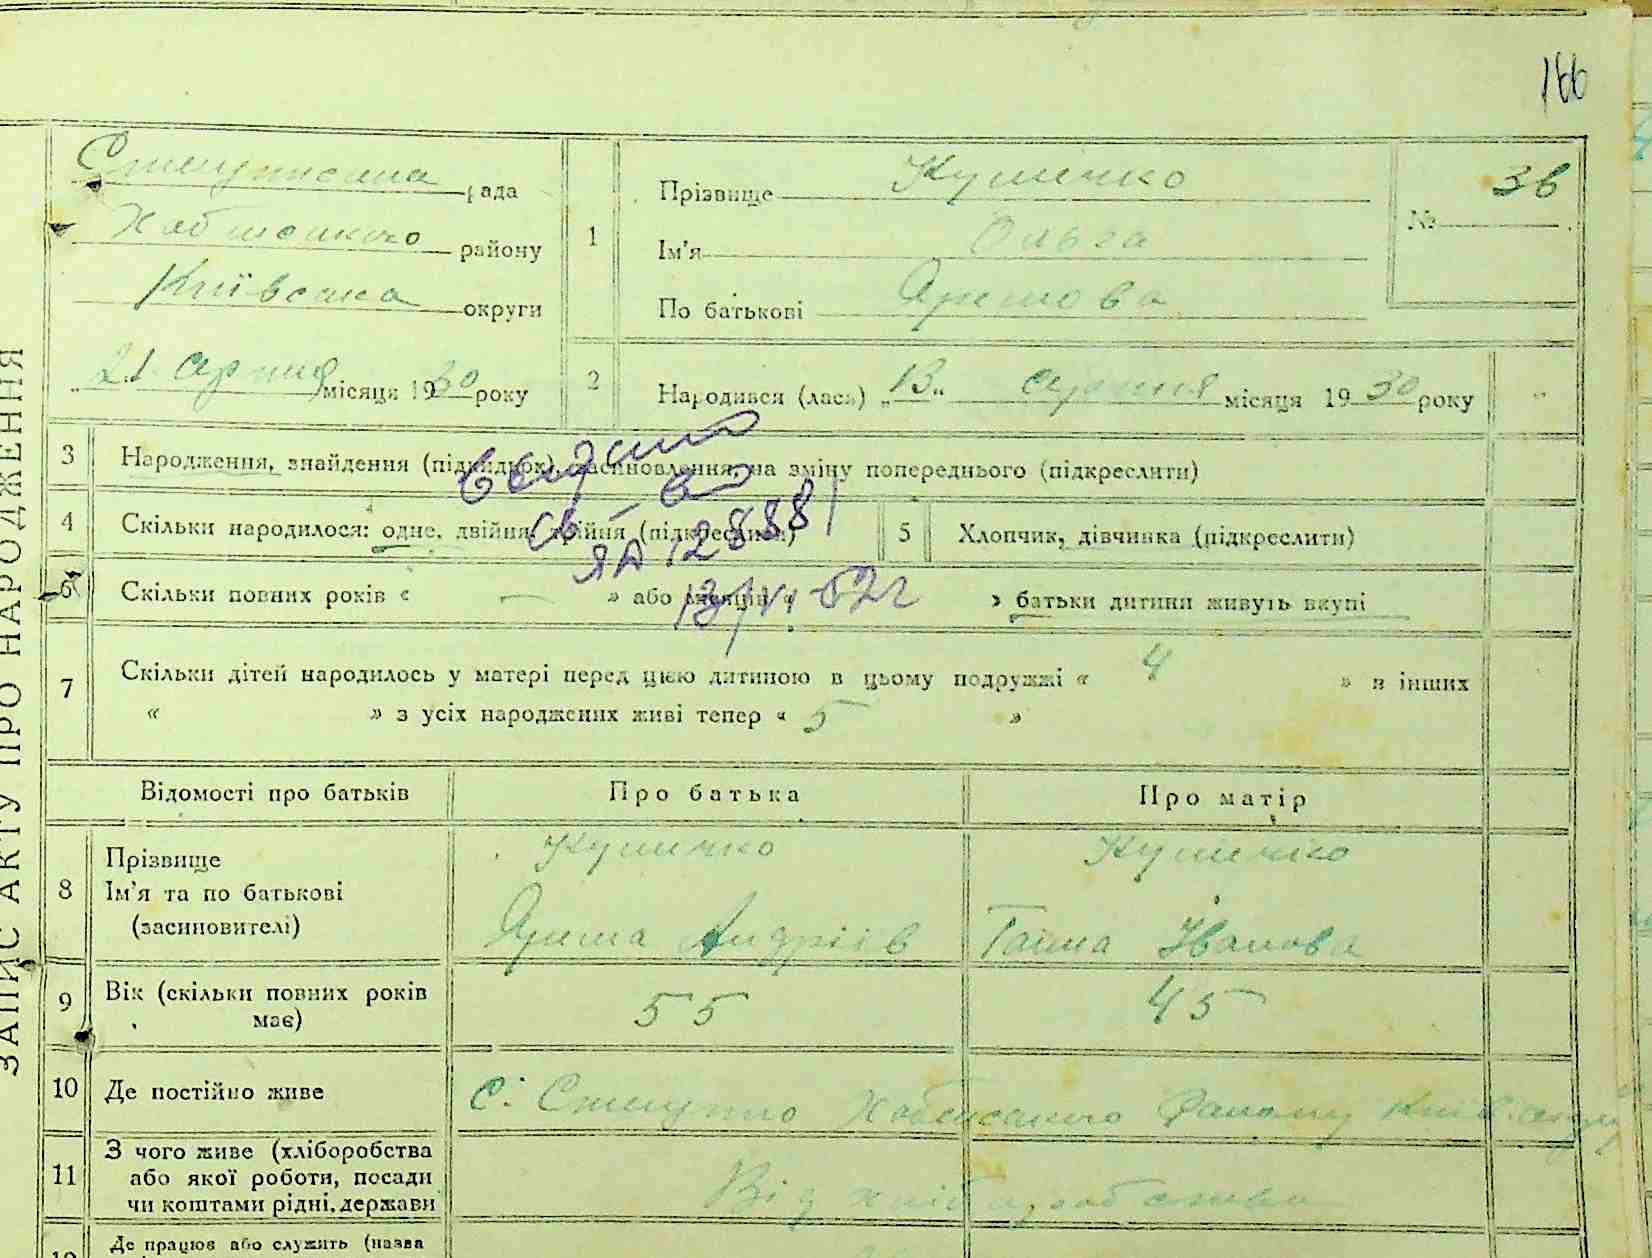 166
рада
Хабенського району
Київська округи
21 серпня місяця 1930 року
1
Прізвище Кушечко
Ім'я Ольга
По батькові Яремова
№ 36
2 Народився (лась) „13“ серпня місяця 1930 року
ЗАПИС АКТУ ПРО НАРОДЖЕННЯ
3 Народження, знайдення (підкидьок), засиновлення, на зміну попереднього (підкреслити)
4 Скільки народилося: одне, двійня, трійня (підкреслити)
5 Хлопчик, дівчинка (підкреслити)
6 Скільки повних років « — » або місяців « » батьки дитини живуть вкупі
Выдано
св-во
ЯА 128881
13/VI-52г
7 Скільки дітей народилось у матері перед цією дитиною в цьому подружжі « 4 » в інших
« » з усіх народжених живі тепер « 5 »
Відомості про батьків Про батька Про матір
8 Прізвище Кушечко Кушечко
Ім'я та по батькові
(засиновителі) Ярема Андріів Ганна Іванова
9 Вік (скільки повних років має) 55 45
10 Де постійно живе с. Хабенського Району
11 З чого живе (хліборобства
або якої роботи, посади
чи коштами рідні, держави
Від хліборобства
Де працює або служить (назва